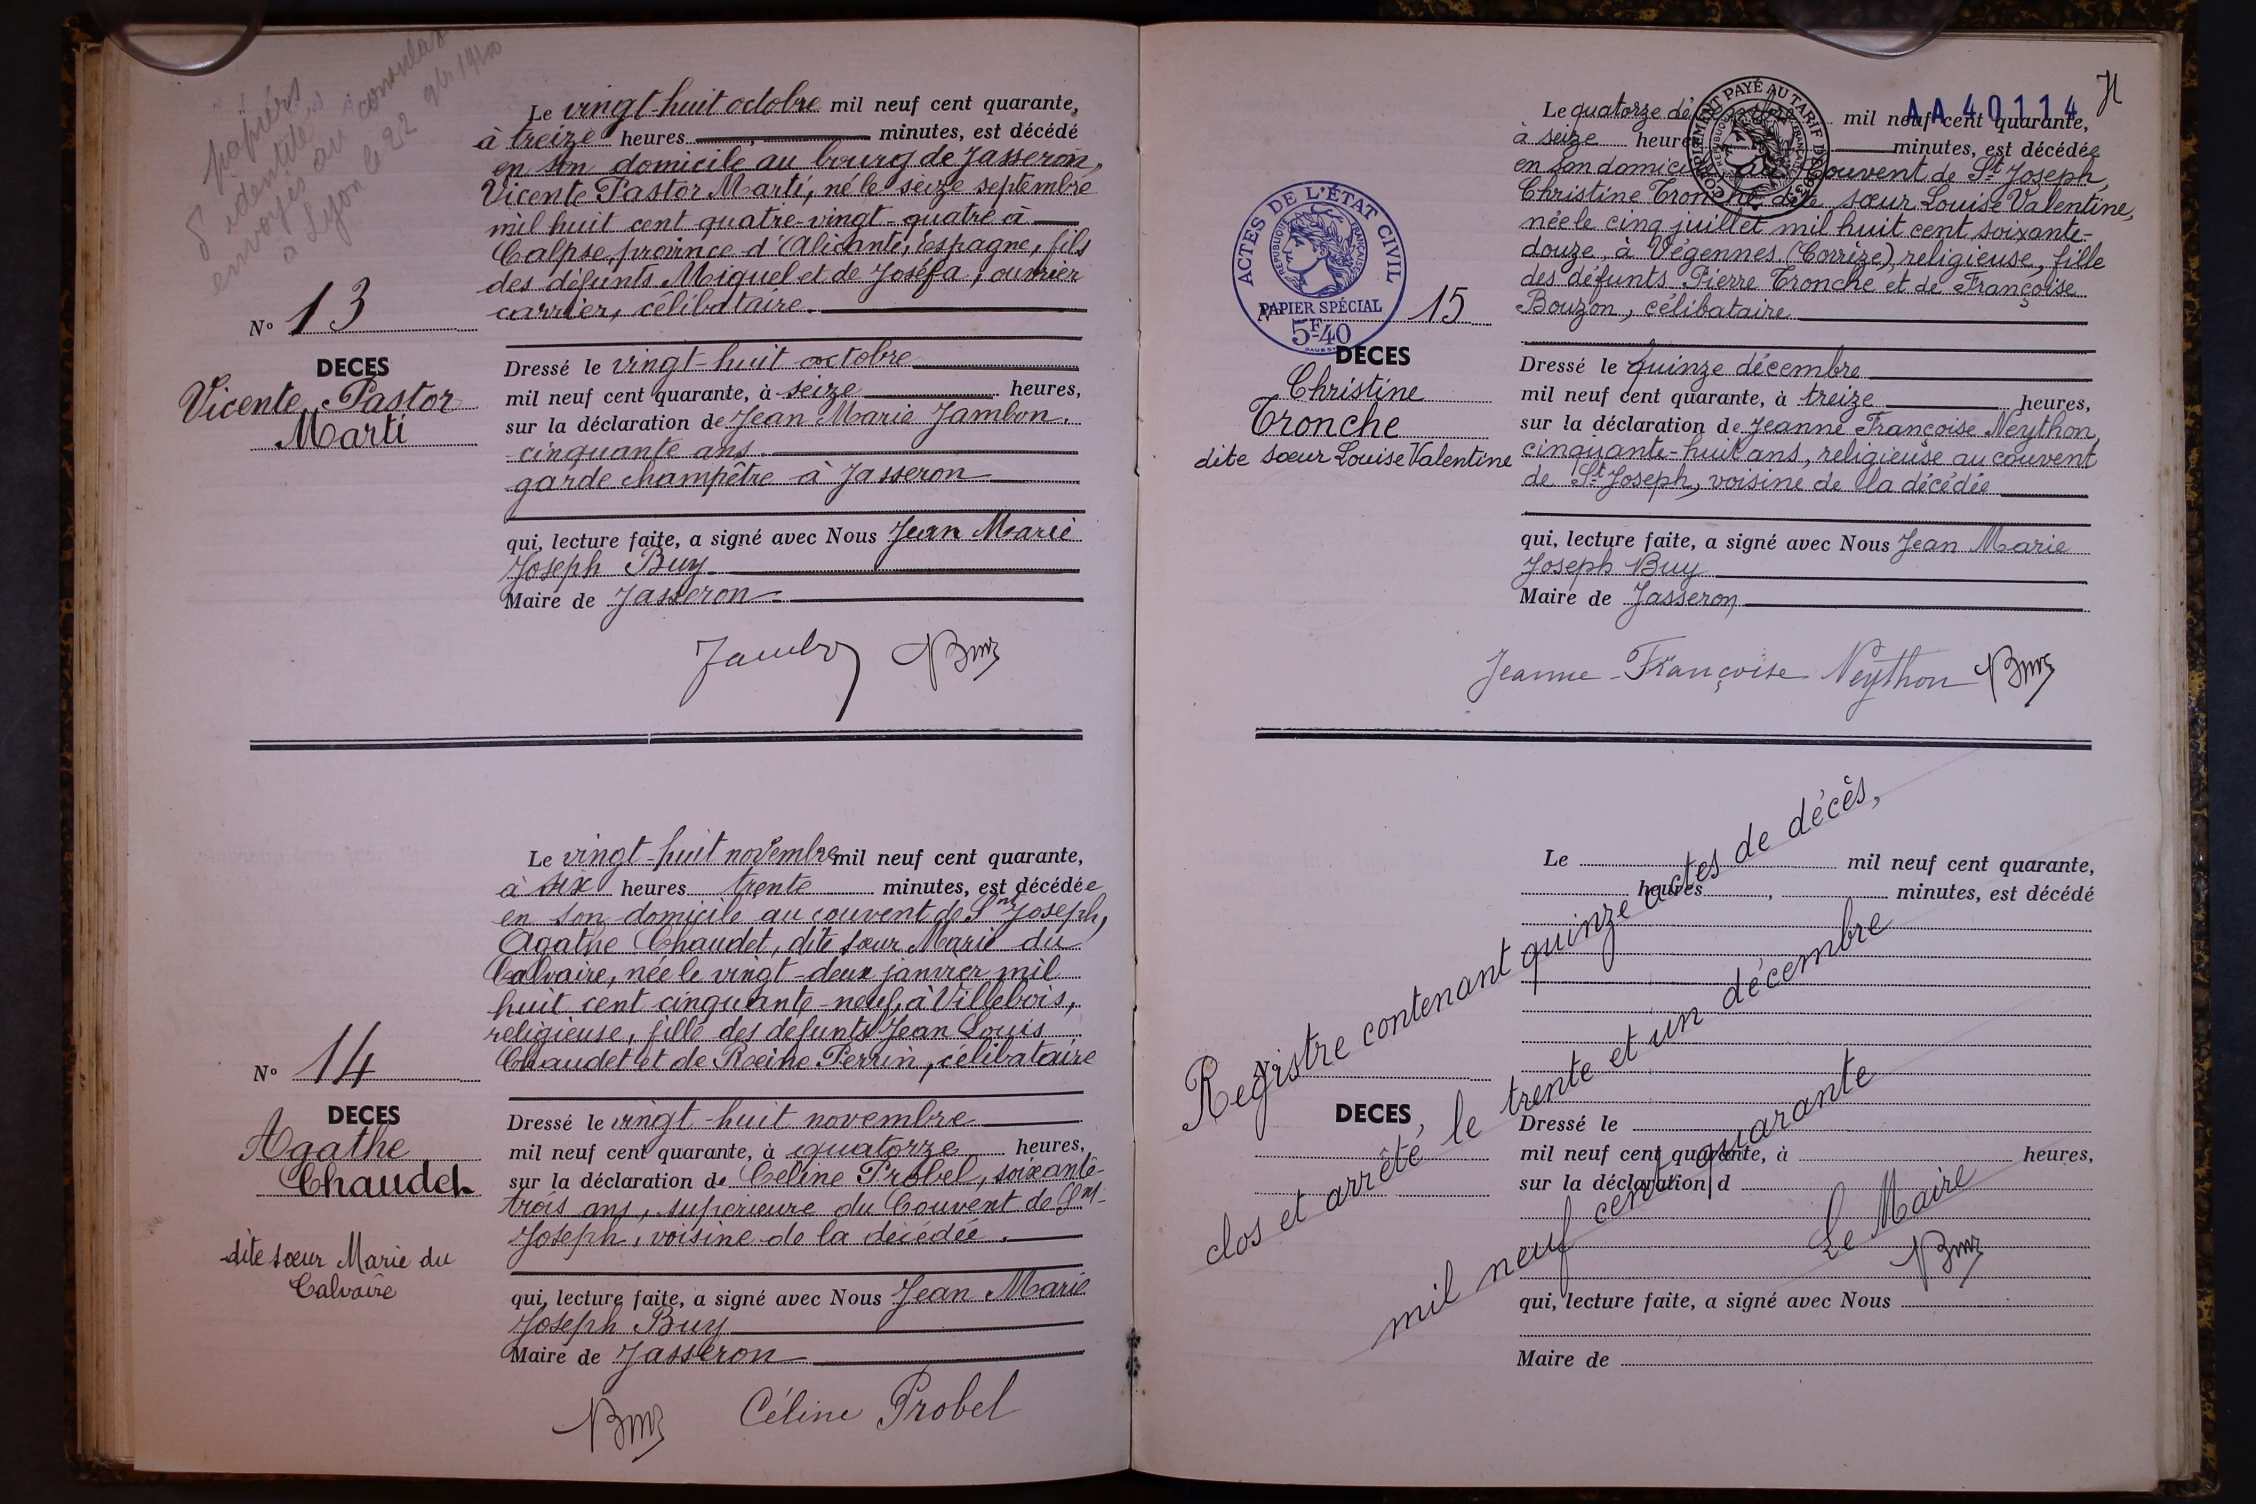 papiers
d'identité
envoyés au consulat
à Lyon le 22
Le vingt-huit octobre mil neuf cent quarante,
à treize heures minutes, est décédé
en son domicile au bourg de Jasseron,
Vicente Pastor Marti, né le seize septembre
mil huit cent quatre-vingt-quatre à
Calpse, province d'Alicante, Espagne, fils
des défunts Miguel et de Joséfa, ouvrier
carrier, célibataire.
N° 13
DECES
Vicente Pastor
Marti
Dressé le vingt-huit octobre
mil neuf cent quarante, à seize heures,
sur la déclaration de Jean Marie Jambon.
cinquante ans.
garde champêtre à Jasseron
qui, lecture faite, a signé avec Nous Jean Marie
Joseph Buy
Maire de Jasseron
Jambon Buy
Le vingt-huit novembre mil neuf cent quarante,
à six heures trente minutes, est décédée
en son domicile au couvent de Snt Joseph,
Agathe Chaudet, dite sœur Marie du
Calvaire, née le vingt-deux janvier mil
huit cent cinquante-neuf, à Villebois,
religieuse, fille des defunts Jean Louis
Chaudet et de Reine Perrin, célibataire
N° 14
DECES
Agathe
Chaudet
dite sœur Marie du
Calvaire
Dressé le vingt-huit novembre
mil neuf cent quarante, à quatorze heures,
sur la déclaration de Céline Probel, soixante-
trois ans, superieure du Couvent de Snt-
Joseph, voisine de la décédée.
qui, lecture faite, a signé avec Nous Jean Marie
Joseph Buy
Maire de Jasseron
Buy Céline Probel
AA 40114
COMPLEMENT PAYÉ AU TARIF DE
Le quatorze décembre mil neuf cent quarante,
à seize heures minutes, est décédée
en son domicile au couvent de St Joseph,
Christine Tronche dite sœur Louise Valentine,
née le cinq juillet mil huit cent soixante-
douze, à Végennes (Corrèze), religieuse, fille
des défunts Pierre Tronche et de Françoise
Bouzon, célibataire
ACTES DE L'ÉTAT CIVIL
REPUBLIQUE FRANÇAISE
PAPIER SPÉCIAL
5F40
N° 15
DECES
Christine
Tronche
dite sœur Louise Valentine
Dressé le quinze décembre
mil neuf cent quarante, à treize heures,
sur la déclaration de Jeanne Françoise Neython,
cinquante-huit ans, religieuse au couvent
de St Joseph, voisine de la décédée
qui, lecture faite, a signé avec Nous Jean Marie
Joseph Buy
Maire de Jasseron
Jeanne-Françoise Neython Buy
Le mil neuf cent quarante,
heures, minutes, est décédé
N°
DECES
Dressé le
mil neuf cent quarante, à heures,
sur la déclaration d
qui, lecture faite, a signé avec Nous
Maire de
Registre contenant quinze actes de décès,
clos et arrêté le trente et un décembre
mil neuf cent quarante
Le Maire
Buy